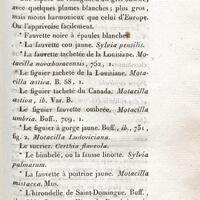 avec quelques plumes blanches; plus gros,
mais moins harmonieux que celui d'Europe.
On l'apprivoise facilement.
* Fauvette noire à épaules blanches.
* La fauvette cou jaune. Sylvia pensilis.
* La fauvette tachetée de la Louisiane. Mo-
tacilla novæboracensis, 752, 1.
* Le figuier tacheté de la Louisiane. Mota-
cilla æstiva. B. 58, 1.
* Le figuier tacheté du Canada. Motacilla
æstiva, ib. Var. B.
* Le figuier fauvette ombrée. Motacilla
umbria. Buff., 709, 1.
* Le figuier à gorge jaune. Buff., ib., 751,
fig. 2. Motacilla Ludoviciana.
Le sucrier. Certhia flaveola.
* Le bimbelé, ou la fausse linotte. Sylvia
palmarum.
* La fauvette à poitrine jaune. Motacilla
mistacea. Mus.
* L'hirondelle de Saint-Domingue. Buff.,